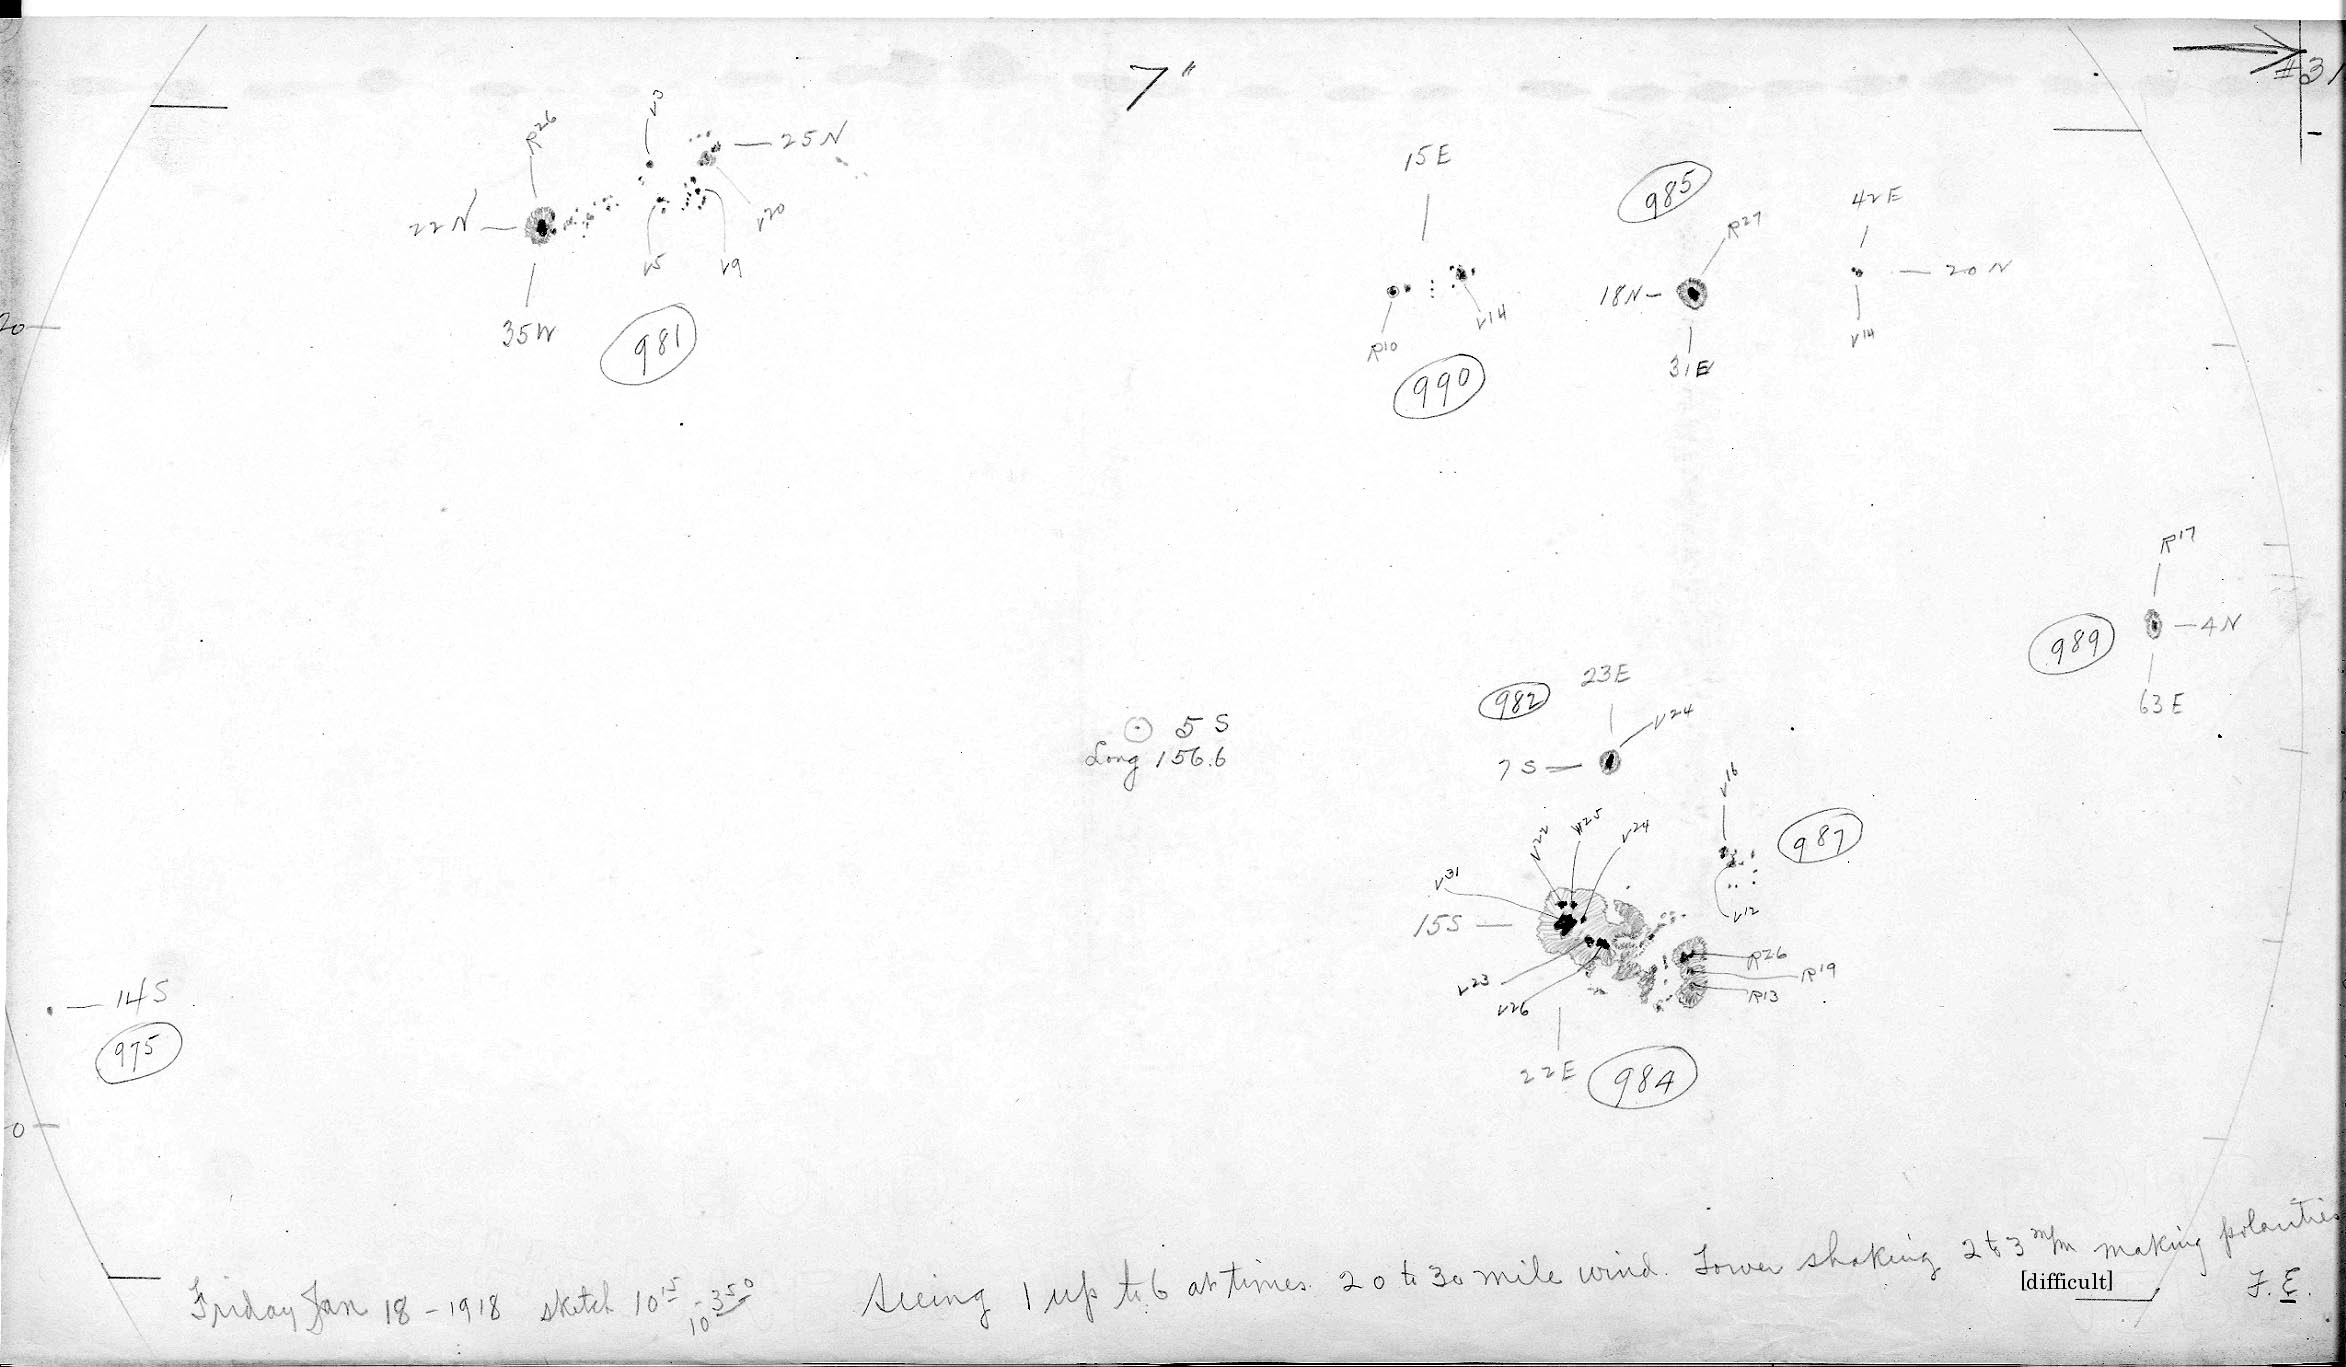 7"
#31
R26
V3
25N
22N
V20
V5
V9
35W
981
15E
985
42E
R27
18N
20N
R10
V14
V14
31E
990
20
R17
989
4N
63E
982
23E
V24
7S
⊙ 5 S
Long 156.6
V16
987
V22
V24
V31
15S
V12
R26
R19
R13
V23
V26
22E
984
14S
975
0
Friday Jan 18 - 1918 sketch 10 15 - 10 350 Seeing 1 up to 6 at times. 20 to 30 mile wind. Tower shaking 2 to 3 m/m making polarities
[difficult]
F. E.